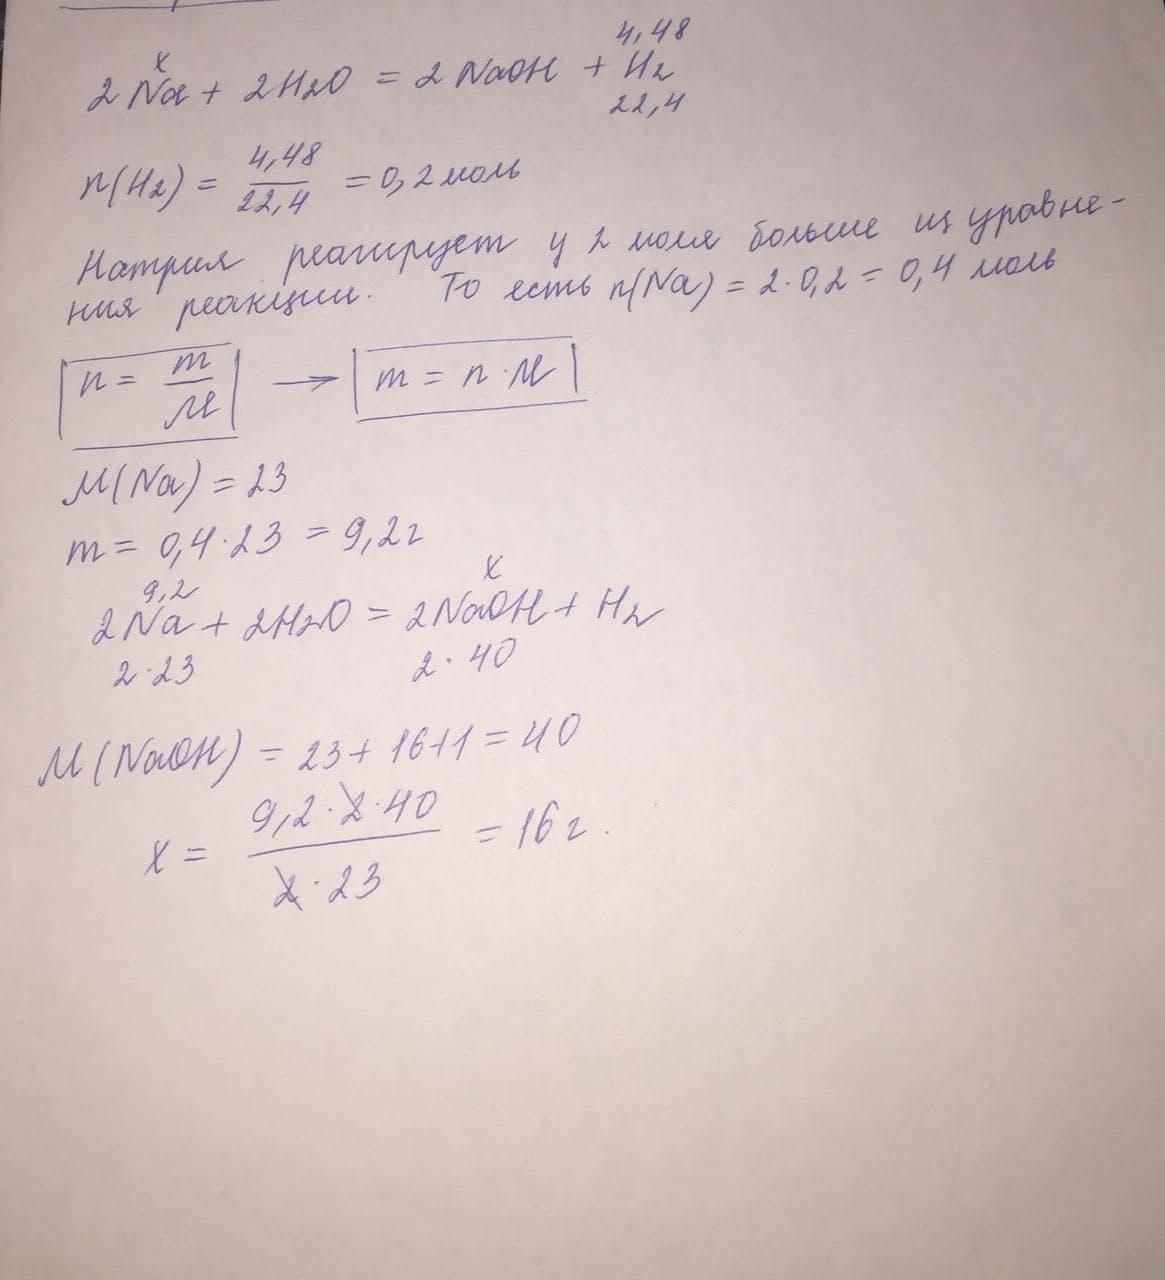 x 4,48
2Na + 2H2O = 2NaOH + H2
22,4
n(H2) = 4,48/22,4 = 0,2 моль
Натрия реагирует у 2 моля больше из уравне-
ния реакции. То есть n(Na) = 2·0,2 = 0,4 моль
n = m/M → m = n·M
M(Na) = 23
m = 0,4·23 = 9,2г
9,2 x
2Na + 2H2O = 2NaOH + H2
2·23 2·40
M(NaOH) = 23+16+1 = 40
x = 9,2·2·40/2·23 = 16г.